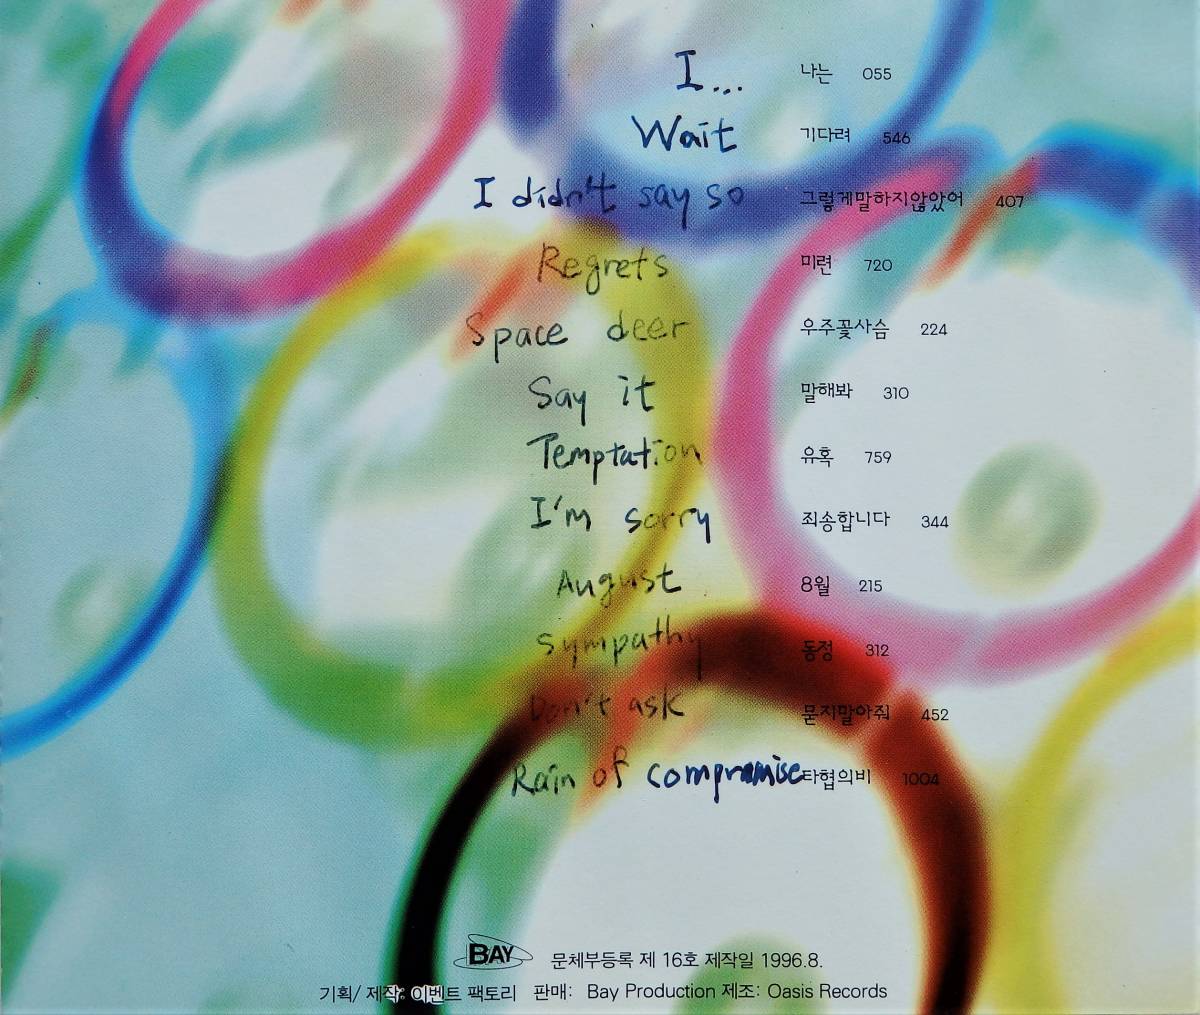 I... 나는 055
Wait 기다려 546
I didn't say so 그렇게말하지않았어 407
Regrets 미련 720
Space deer 우주꽃사슴 224
Say it 말해봐 310
Temptation 유혹 759
I'm sorry 죄송합니다 344
August 8월 215
sympathy 동정 312
Don't ask 묻지말아줘 452
Rain of compromise 타협의비 1004
BAY 문체부등록 제 16호 제작일 1996.8.
기획/ 제작: 이벤트 팩토리 판매: Bay Production 제조: Oasis Records